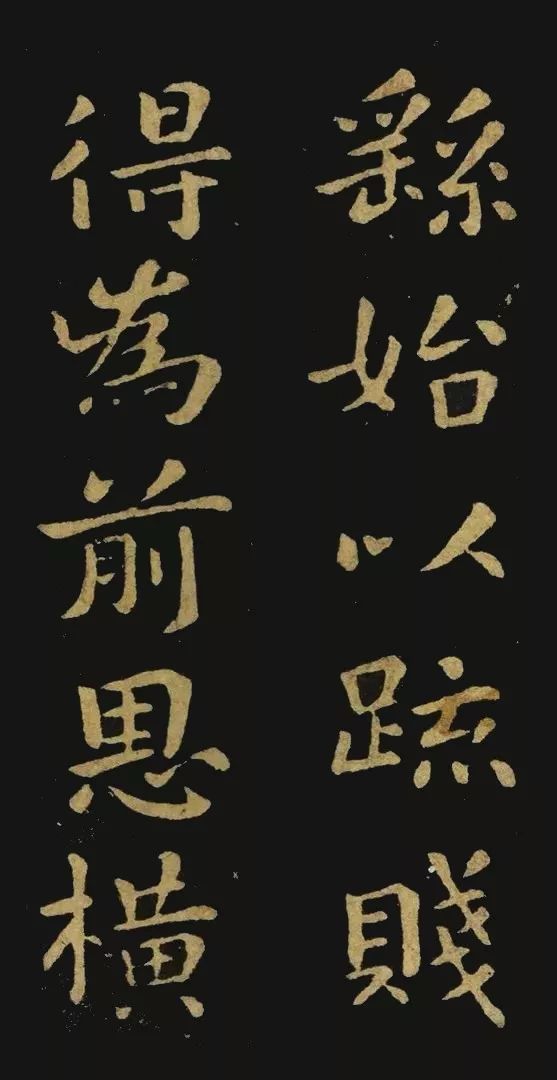 繇始以疏賤
得為前恩横